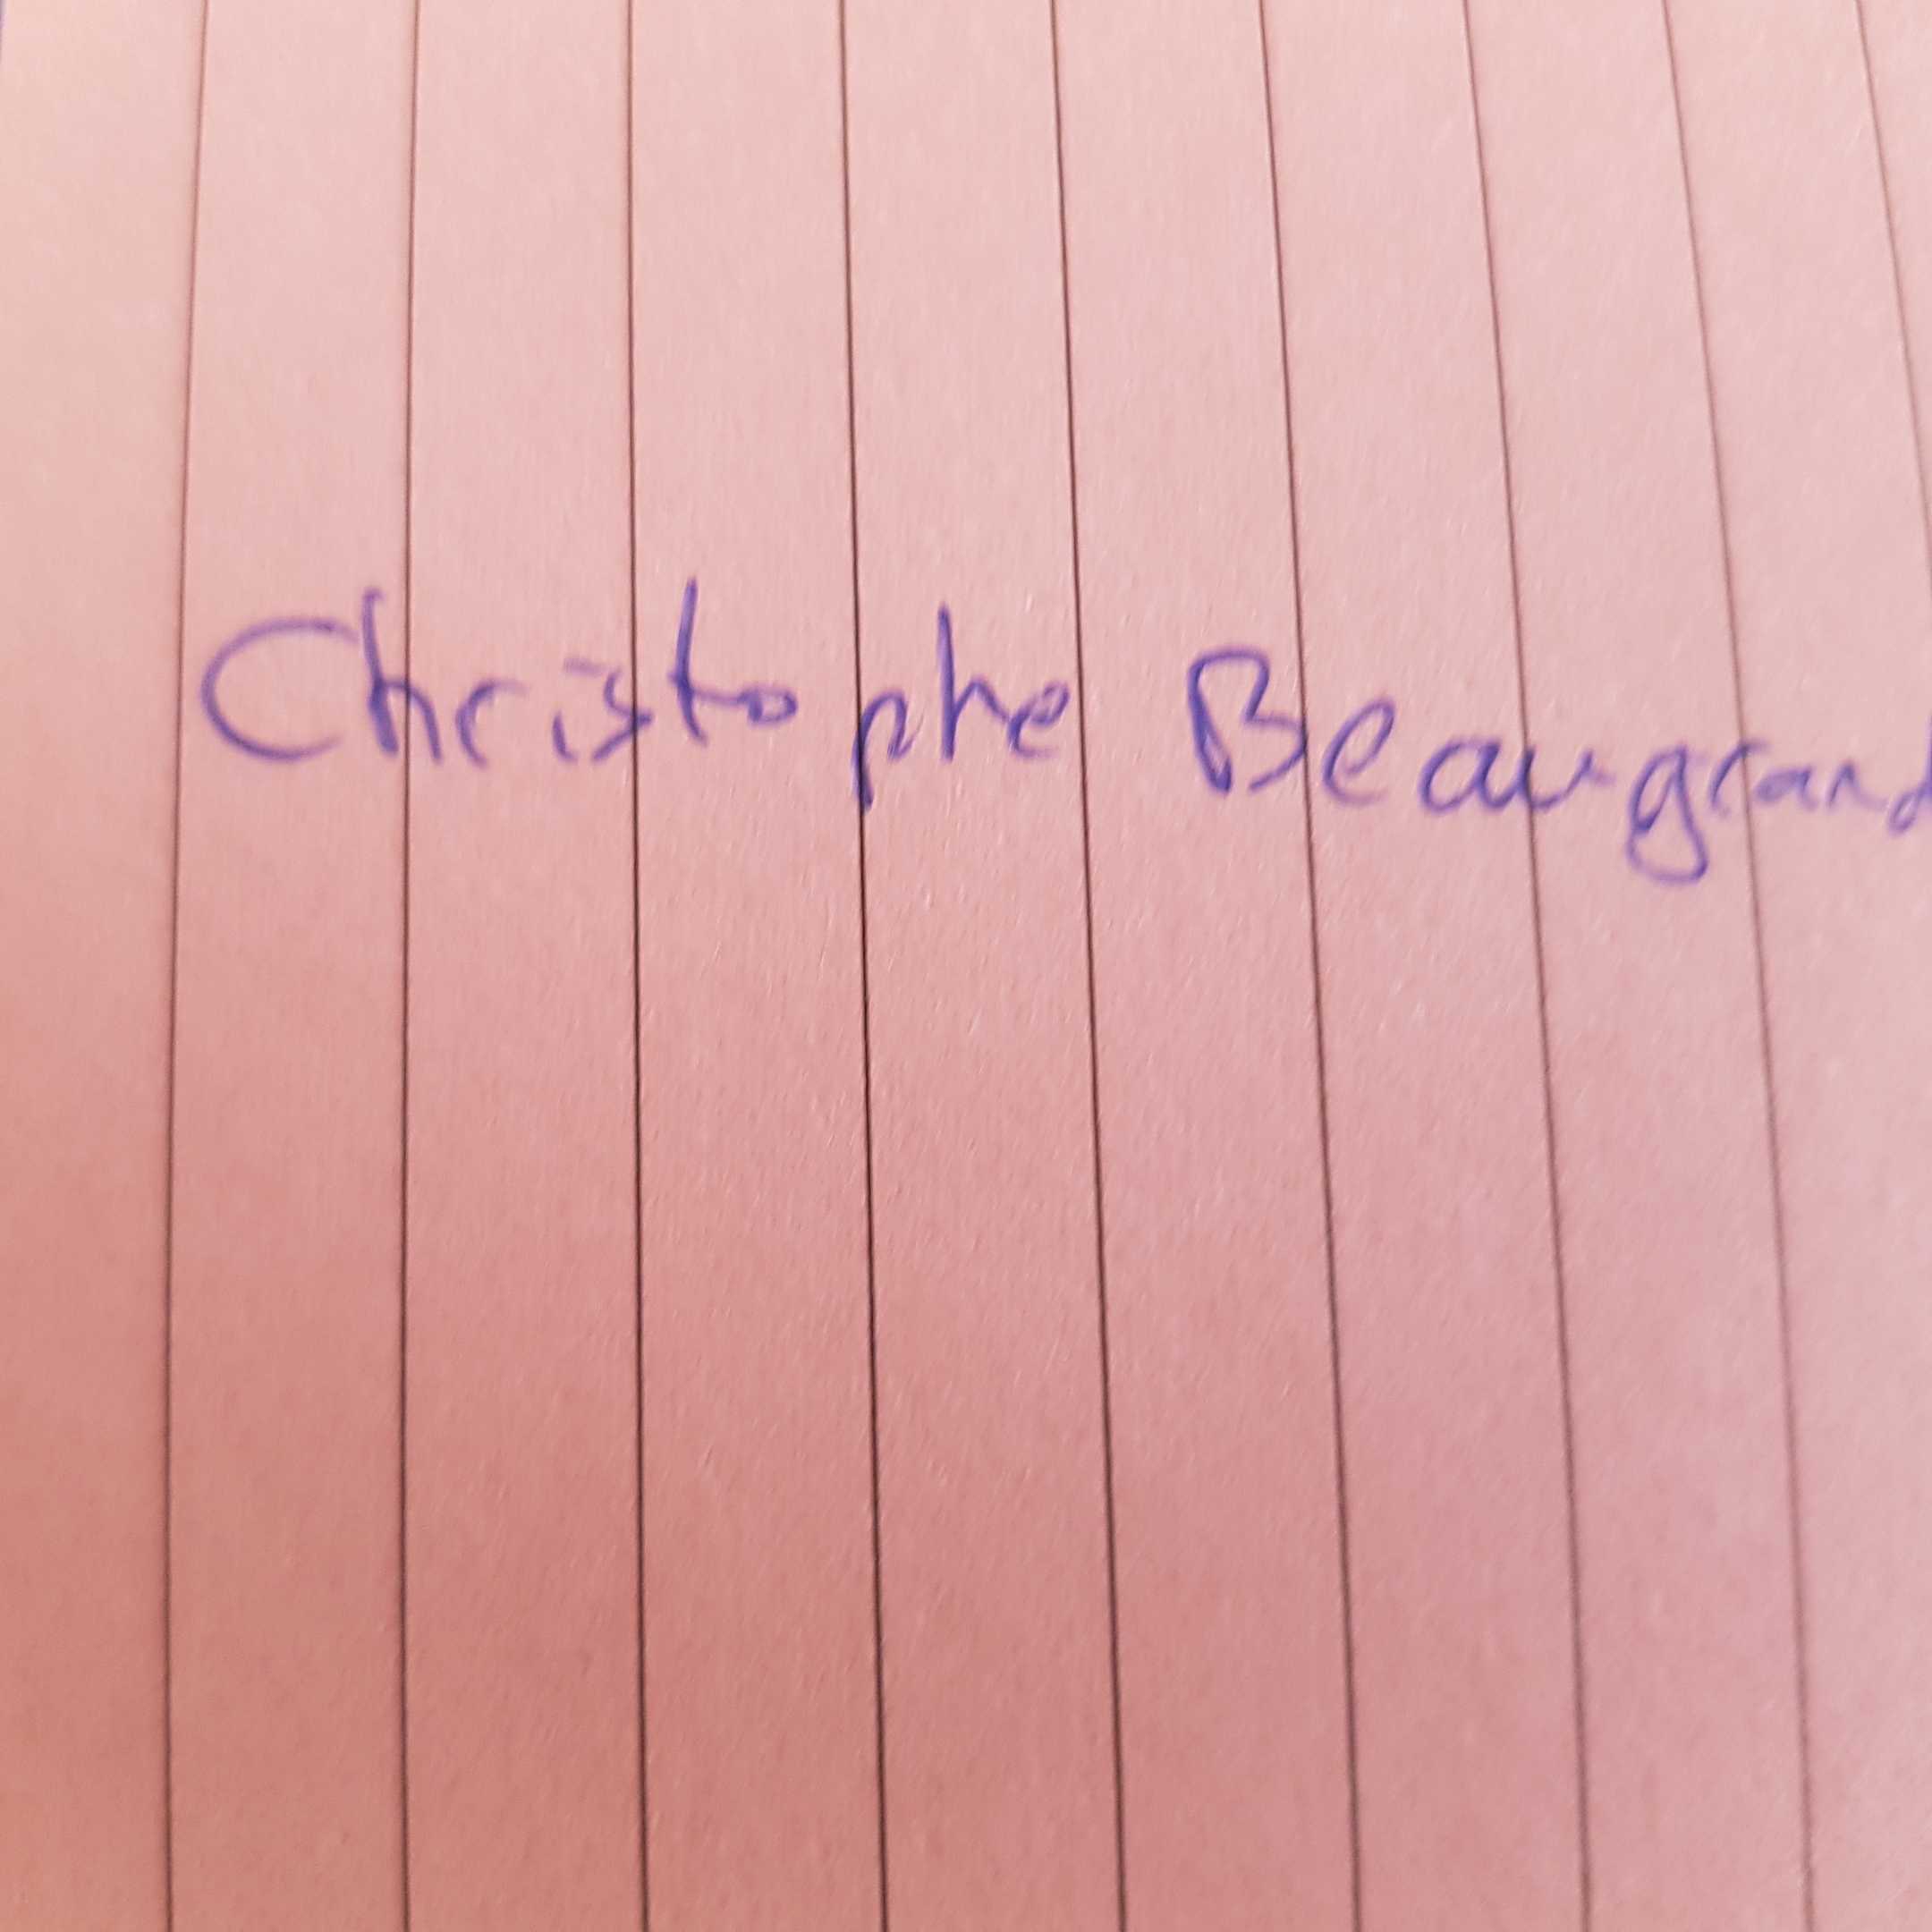 Christophe Beaugrand